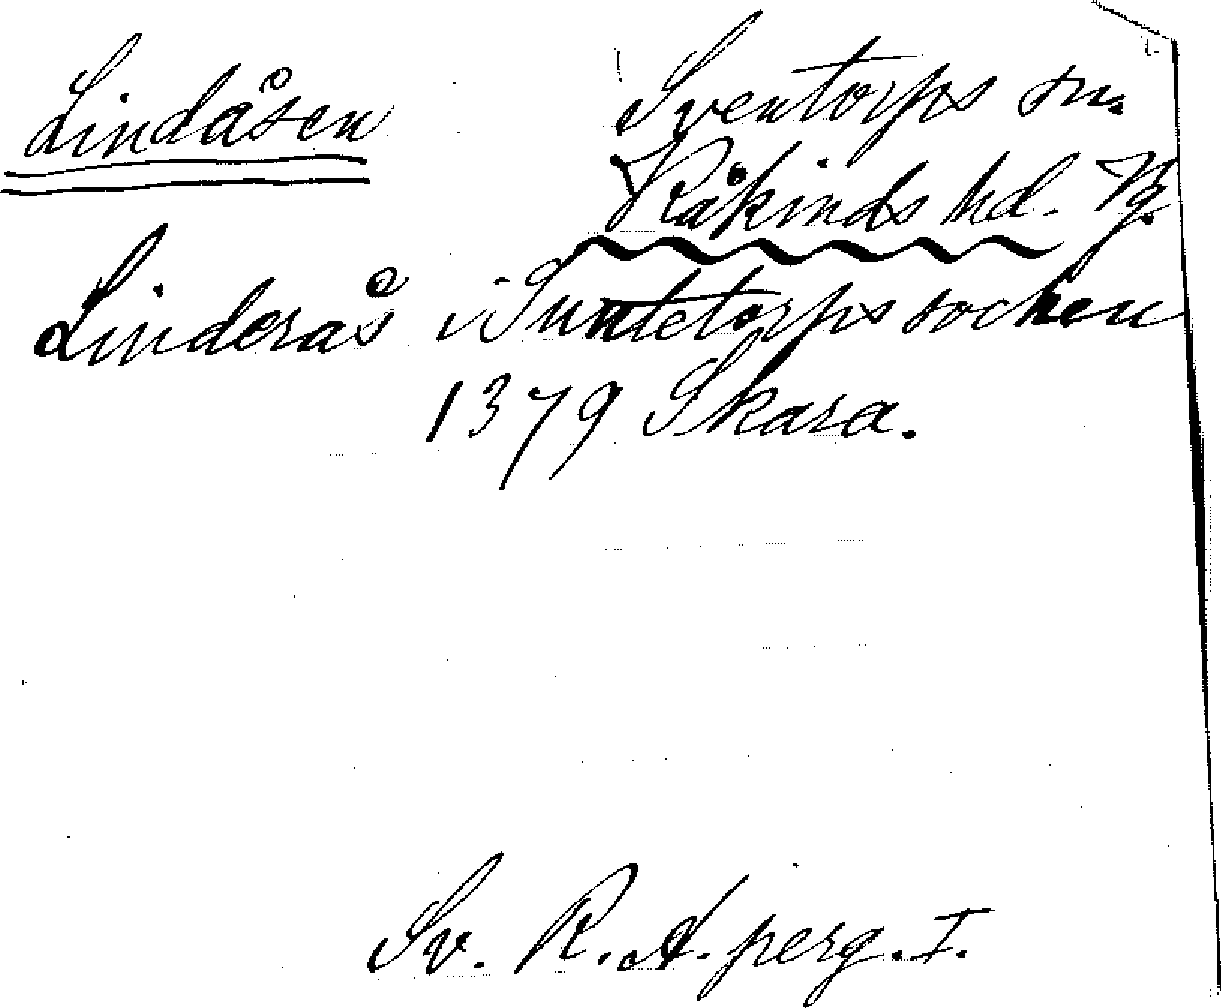 Lindåsen Sventorps sn.
Kåkinds hd. Vg.
Linderås i Suntetorps socken
1379 Skara.
Sv. R. A. perg. I.